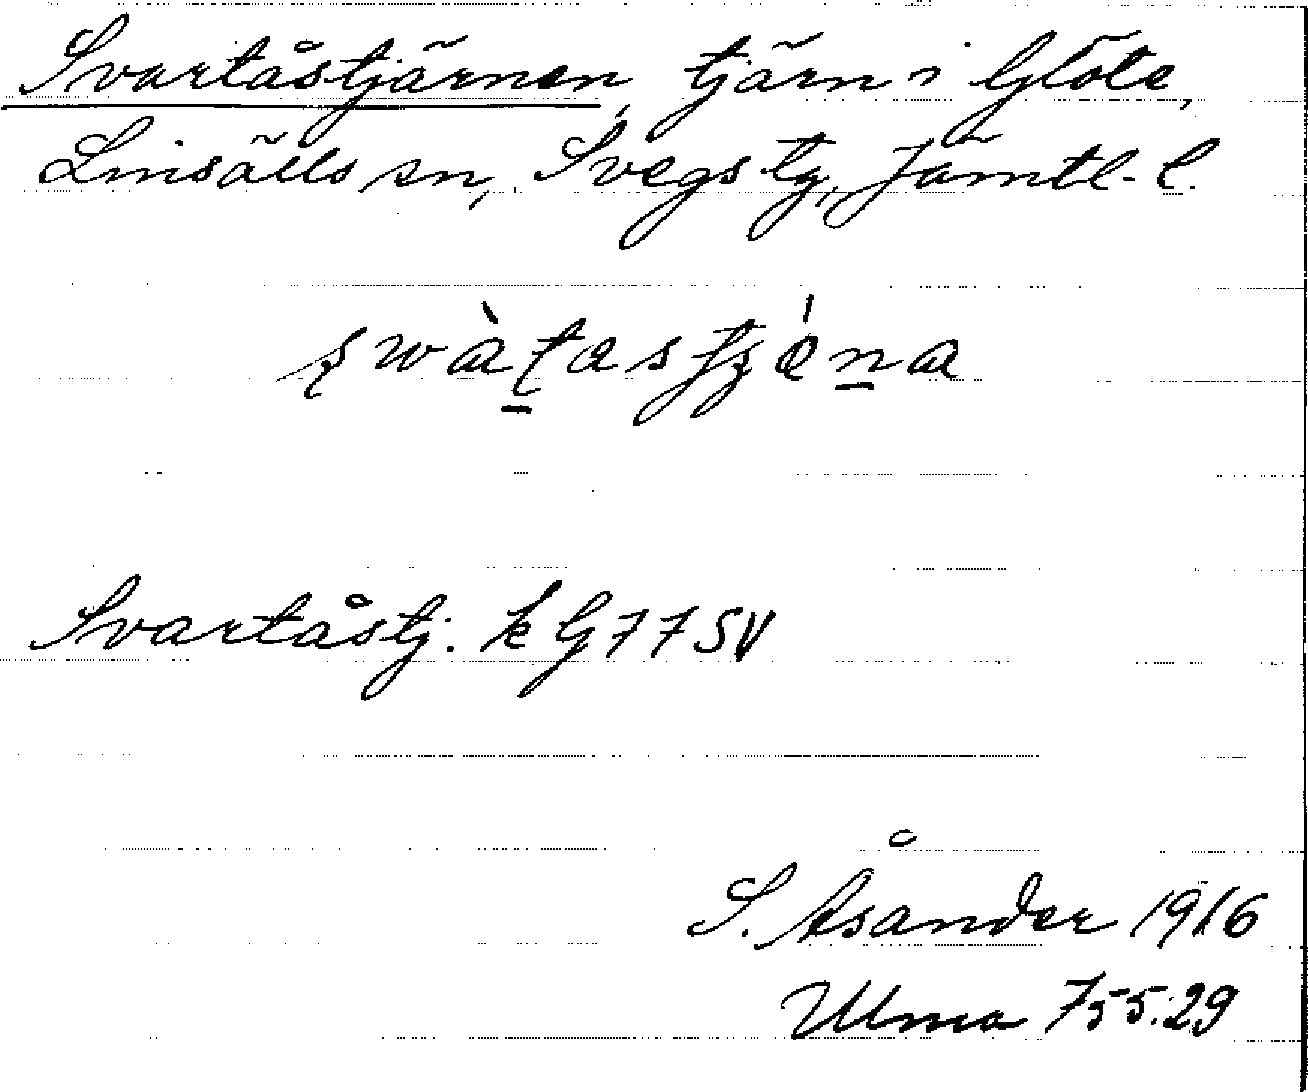 Svartåstjärnen, tjärn i Glöte,
Linsälls sn, Svegs tg, Jämtl. l.
swàtastjéna
Svartåstj. k G77SV
S. Åsander 1916
Ulma 755:29